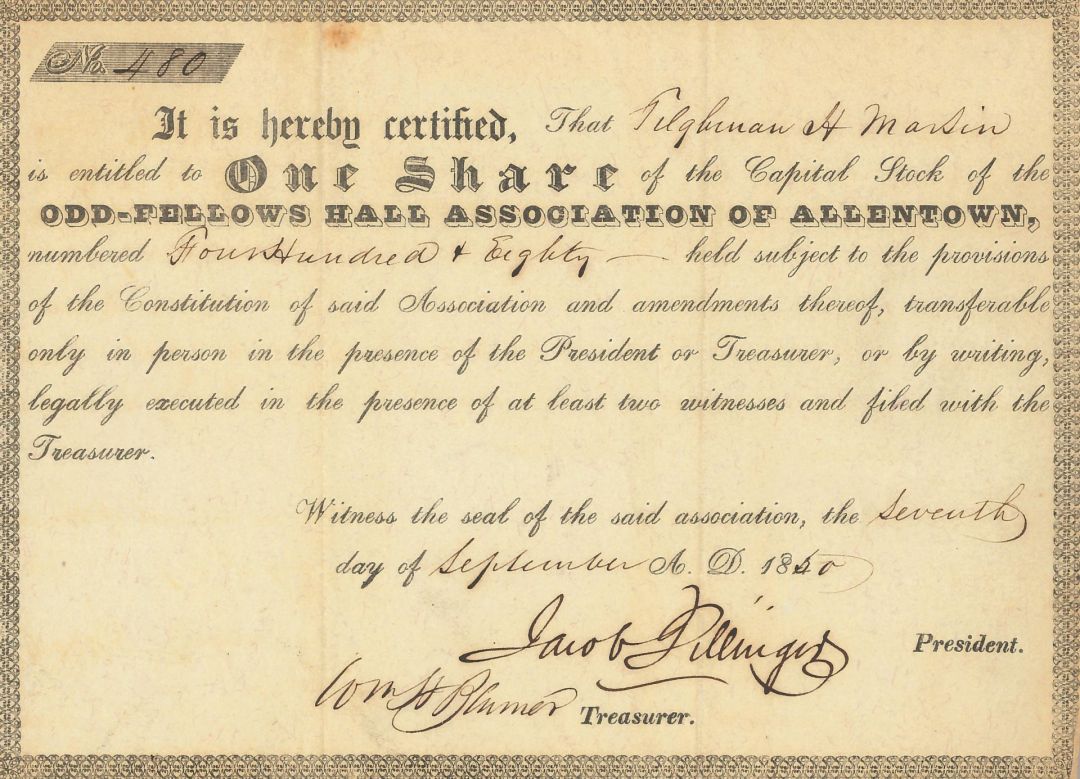 No. 480
It is hereby certified, That Tilghman H Martin
is entitled to One Share of the Capital Stock of the
ODD-FELLOWS HALL ASSOCIATION OF ALLENTOWN,
numbered Four Hundred & Eighty — held subject to the provisions
of the Constitution of said Association and amendments thereof, transferable
only in person in the presence of the President or Treasurer, or by writing,
legally executed in the presence of at least two witnesses and filed with the
Treasurer.
Witness the seal of the said association, the seventh
day of September A. D. 1850
Jacob Dillinger President.
Wm H Blumer Treasurer.